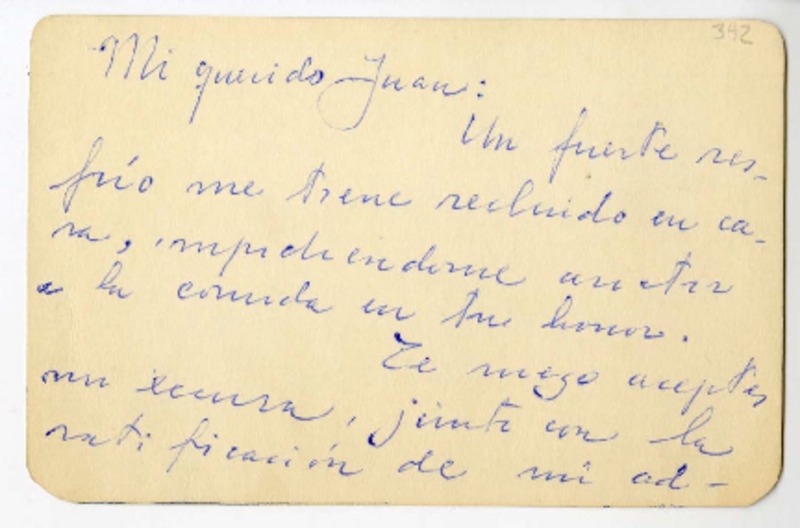 342
Mi querido Juan:
Un fuerte res-
frío me tiene recluido en ca-
sa, impidiendome asistir
a la comida en tu honor.
Te ruego aceptes
mi excusa, junto con la
ratificación de mi ad-